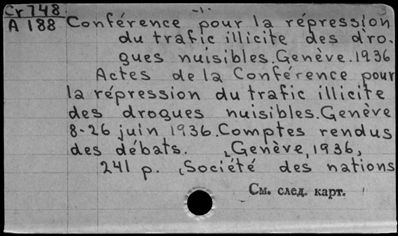 Cr 748 -1- 3
A 188 Conférence pour la répression
du trafic illicite des dro-
gues nuisibles. Genève. 1936
Actes de la Conférence pour
la répression du trafic illicite
des drogues nuisibles. Genève
8-26 juin 1936. Comptes rendus
des débats. Genève, 1936,
241 p. Société des nations
См. след. карт.